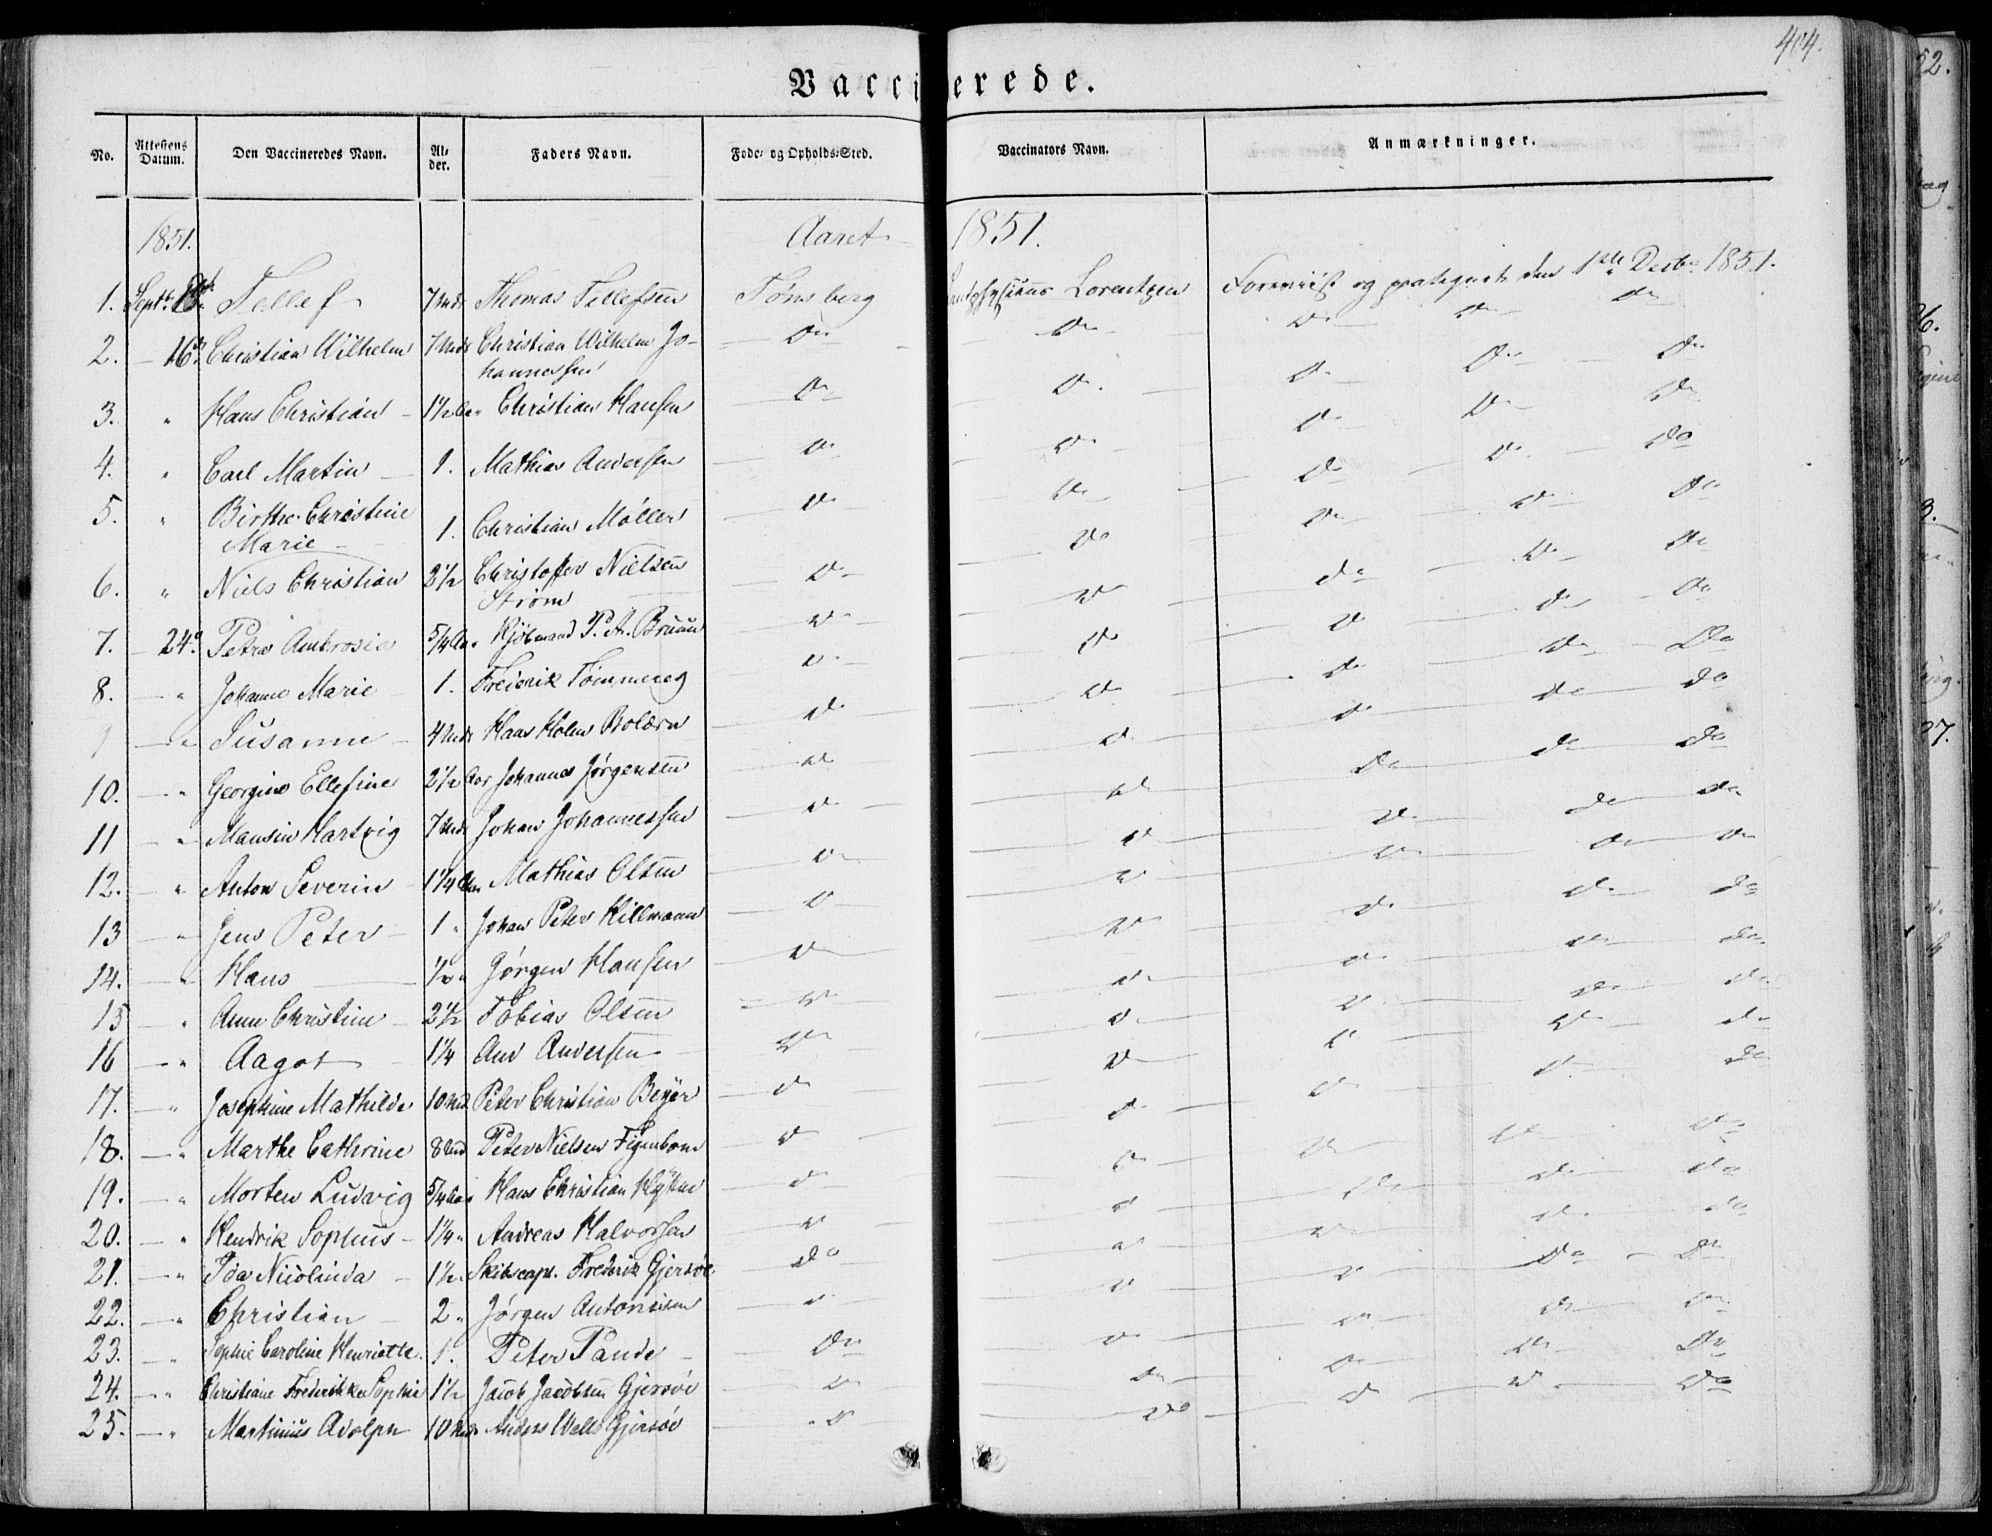 404.
Vaccinerede.
No. Attestens Datum. Den Vaccineredes Navn. Al- der. Faders Navn. Føde- og Opholds-Sted. Vaccinators Navn. Anmærkninger.
1851. Aaret 1851.
1. Septr. Tellef 7 Mdr Thomas Tellefsen Tønsberg Lorentzen Foreviist og protegeret den 1ste Decbr 1851.
2. — 16de Christian Wilhelm 7 Mdr Christian Wilhelm Jo- Do Do Do Do Do
hannessen
3. " Hans Christian 1½ Aar Christian Hansen Do Do Do Do Do
4. " Carl Martin 1. Mathias Andersen Do Do Do Do Do
5. " Birthe Christine Do Do Do Do Do
Marie 1. Christian Møller
6. " Niels Christian 2½ Christoffer Nielsen Do Do Do Do Do
Strøm
7. — 24de Petra Ambrosia 5/4 Aar Kjøbmand P. A. Bruun Do Do Do Do Do
8. — " Johanne Marie 1. Frederik Tømmereg Do Do Do Do Do
9 — " Susanne 4 Mdr Hans Holm Bolærn Do Do Do Do Do
10. — " Georgine Ellefine 2½ Aar Johannes Jørgensen Do Do Do Do Do
11 — " Mansin Hartvig 7 Mdr Johan Johannessen Do Do Do Do Do
12. — " Anton Severin 1¼ Aar Mathias Olsen Do Do Do Do Do
13 — " Jens Peter 1 " Johan Peter Killmann Do Do Do Do Do
14. — " Hans ½ " Jørgen Hansen Do Do Do Do Do
15 — " Anne Christine 2½ Tobias Olsen Do Do Do Do Do
16 — " Aagot 1¼ And Andersen Do Do Do Do Do
17. — " Josephine Mathilde 10 Md Peter Christian Beyer Do Do Do Do Do
18. — " Marthe Cathrine 8 Md Peter Nielsen Figenbom Do Do Do Do Do
19. — " Morten Ludvig 5/4 Aar Hans Christian Do Do Do Do Do
20. — " Hendrik Sophus 1¼ " Andreas Halvorsen Do Do Do Do Do
21. — " Ida Nicolinda 1½ Skibscapt. Frederik Gjersøe Do Do Do Do Do
22. — " Christian 2 " Jørgen Antonisen Do Do Do Do Do
23. — " Sophie Caroline Henriette. 1. Peter Pande Do Do Do Do Do
24. — " Christiane Frederikke Sophie 1½ Jacob Jacobsen Gjersøe Do Do Do Do Do
25. — " Martinius Adolph 10 Mdr Anders Gjersøe Do Do